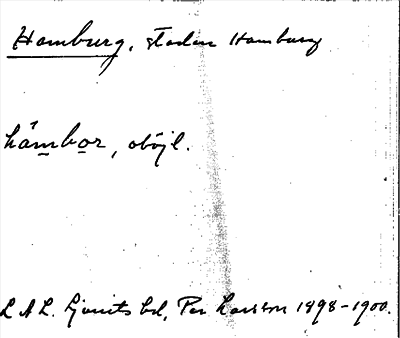 Hamburg, staden Hamburg
håmbor, oböjl.
L A L. Ljunits hd, Per Larsson 1898-1900.